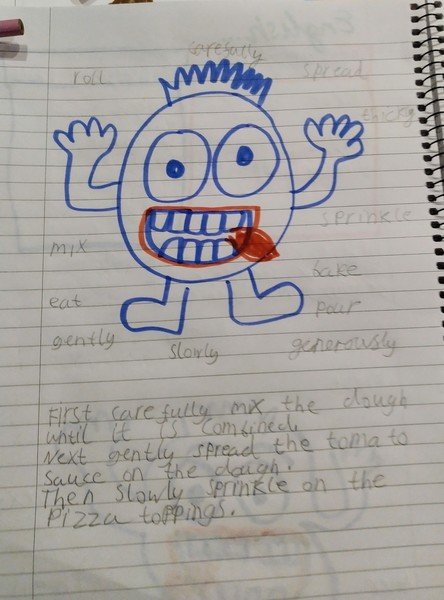 carefully
roll
spread
thickly
sprinkle
mix
bake
eat
pour
gently
slowly
generously
First carefully mix the dough
until it is combined.
Next gently spread the tomato
sauce on the dough.
Then slowly sprinkle on the
pizza toppings.